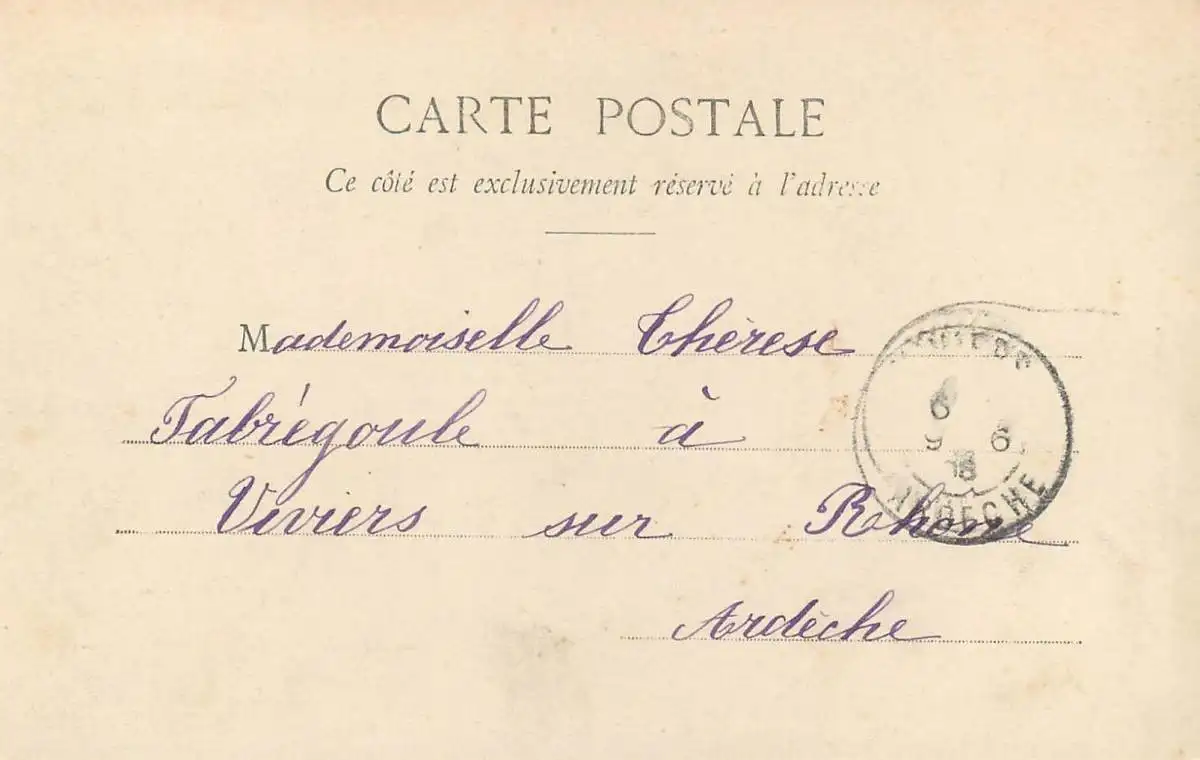 CARTE POSTALE
Ce côté est exclusivement réservé à l'adresse
Mademoiselle Thérèse
Fabrégoule à
Viviers sur Rhone
Ardèche
6
9 6
ARDECHE